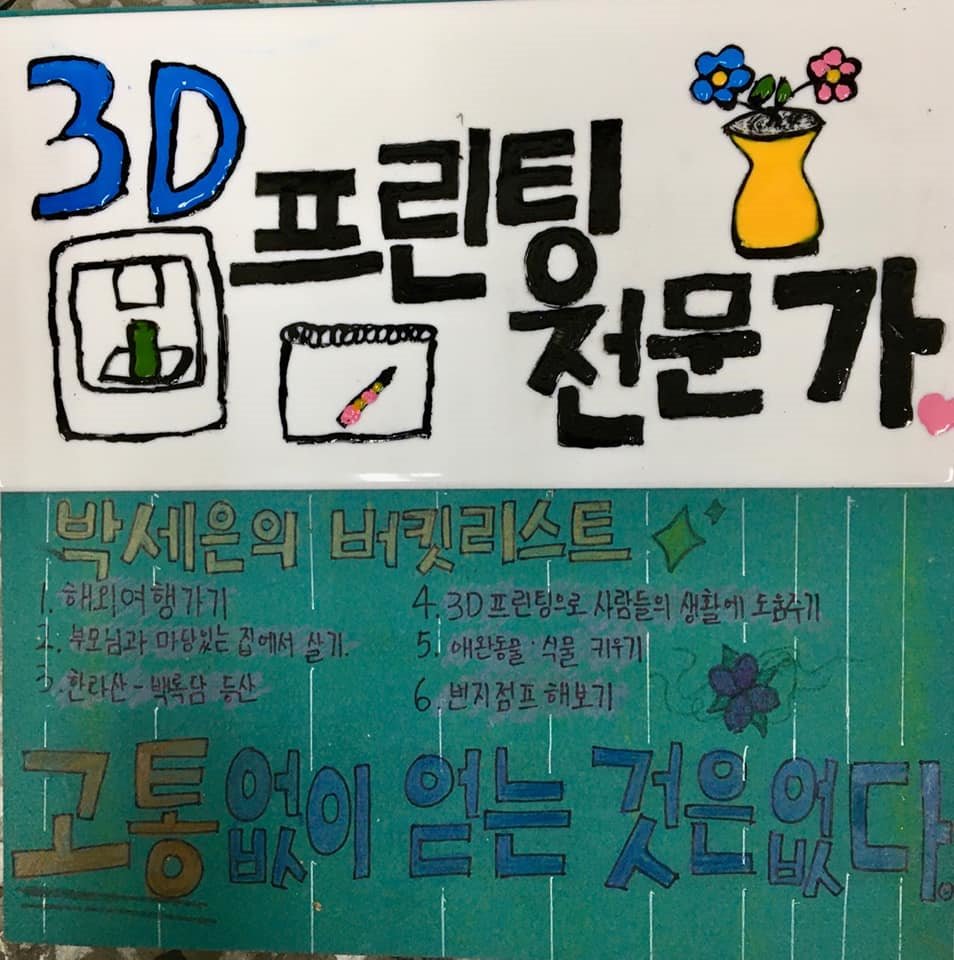 3D
프린팅
전문가
박세은의 버킷리스트
1. 해외여행가기
2. 부모님과 마당있는 집에서 살기.
3. 한라산 - 백록담 등산
4. 3D프린팅으로 사람들의 생활에 도움주기
5. 애완동물·식물 키우기
6. 번지점프 해보기
고통없이 얻는 것은 없다.